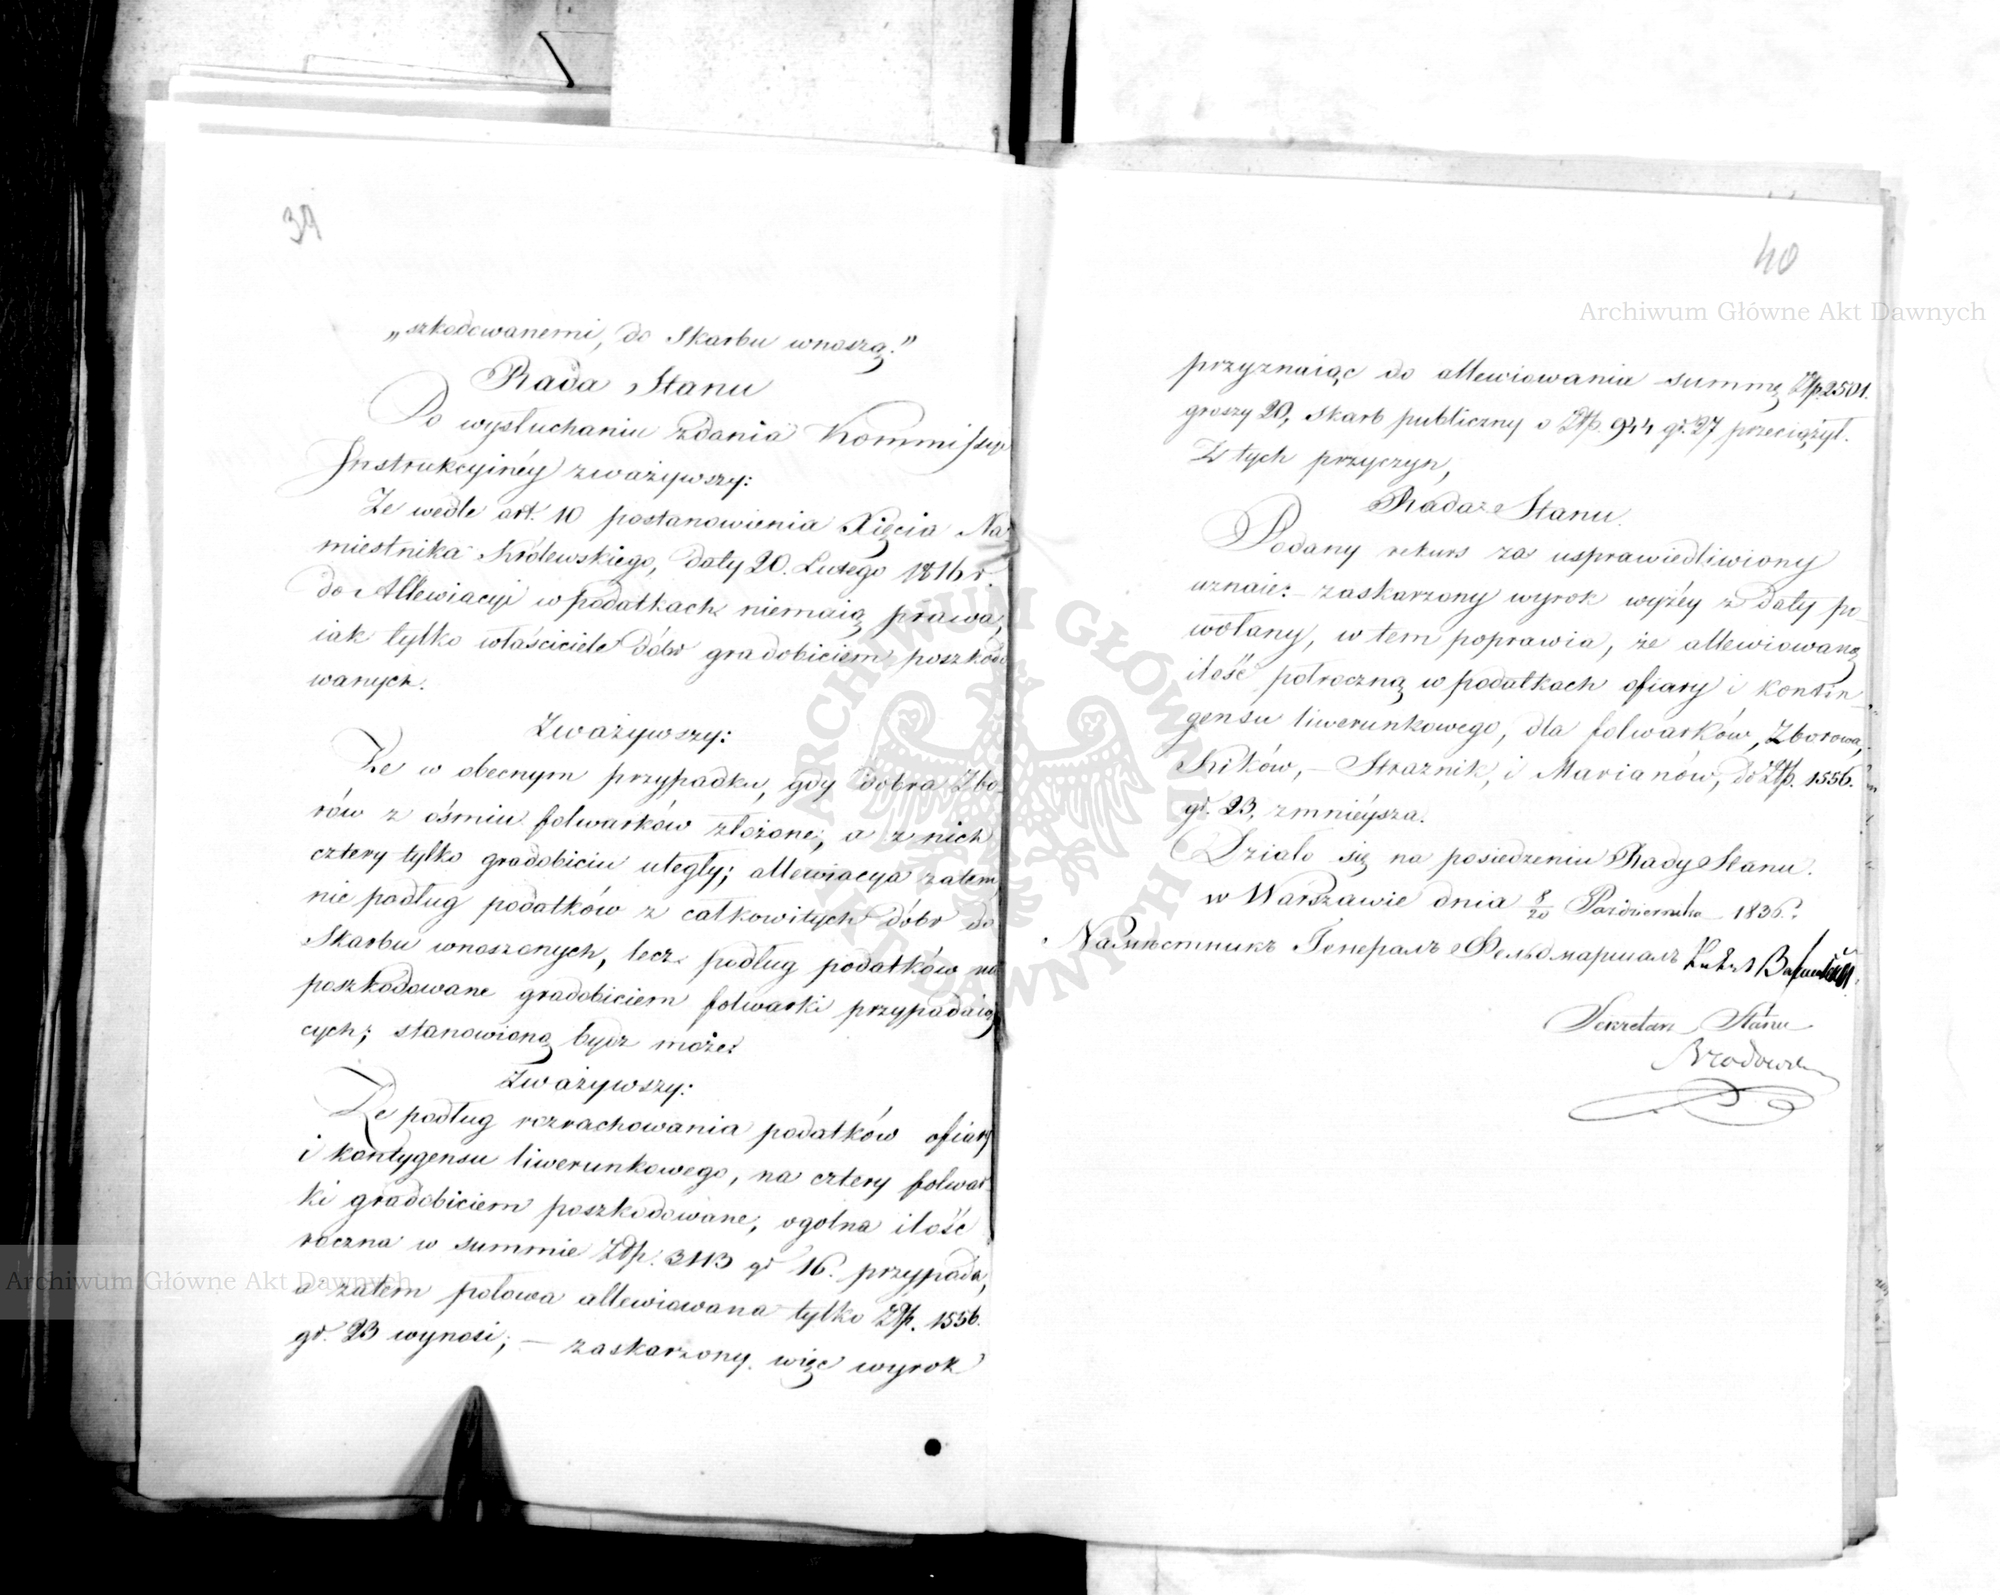 39
„szkodowanemi, do Skarbu wnoszą.”
Rada Stanu
Po wysłuchaniu zdania Kommissyi
Instrukcyinéy zważywszy:
Że wedle art. 10 postanowienia Xięcia Na-
miestnika Królewskiego, daty 20. Lutego 1816 r.
do Allewiacyi w podatkach niemaią prawa,
iak tylko właściciele dóbr gradobiciem poszkodo
wanych.
Zważywszy:
Że w obecnym przypadku, gdy dobra Zbo-
rów z ośmiu folwarków złożone, a z nich
cztery tylko gradobiciu uległy; allewiacya zatem,
nie podług podatków z całkowitych dóbr do
Skarbu wnoszonych, lecz podług podatków na
poszkodowane gradobiciem folwarki przypadaią
cych; stanowioną bydz może:
Zważywszy:
Że podług rozrachowania podatków ofiary
i kontygensu liwerunkowego, na cztery folwar-
ki gradobiciem poszkodowane, ogolna ilość
roczna w summie Złp. 3113 gr 16. przypada,
a zatem połowa allewiowana tylko Złp. 1556.
gr. 23 wynosi; — zaskarzony więc wyrok
40
przyznaiąc do allewiowania summę Złp. 2501.
groszy 20, skarb publiczny o Złp. 944 gr. 27 przeciążył.
Z tych przyczyn,
Rada Stanu.
Podany rekurs za usprawiedliwiony
uznaie: — zaskarzony wyrok wyżéy z daty po-
wołany, w tem poprawia, że allewiowaną
ilość półroczną w podatkach ofiary i kontin-
gensu liwerunkowego, dla folwarków, Zborowa,
Kików, — Straznik, i Marianów, do Złp. 1556.
gr. 23, zmnieysza.
Działo się na posiedzeniu Rady Stanu.
w Warszawie dnia 8/20 Października 1836.
Намѣстникъ Генералъ Фельдмаршалъ
Sekretarz Stanu
Brodowski
Archiwum Główne Akt Dawnych
Archiwum Główne Akt Dawnych
ARCHIWUM GŁÓWNE AKT DAWNYCH